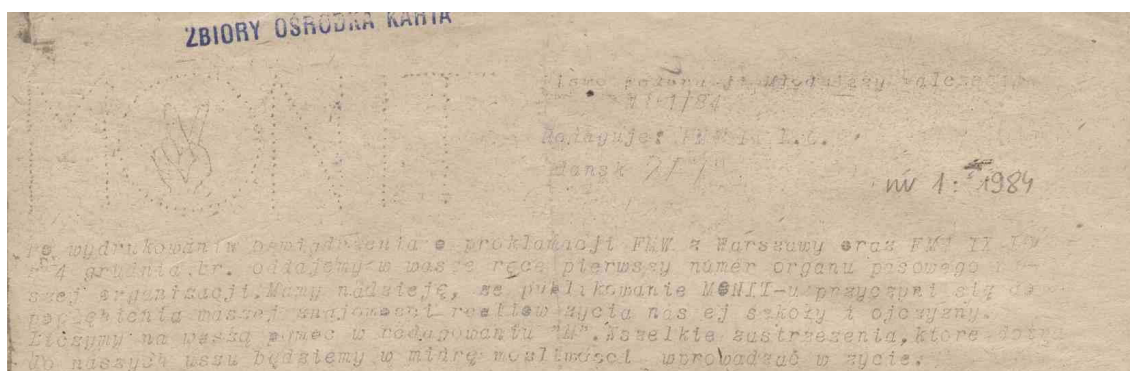 ZBIORY OŚRODKA KARTA
MONIT
Pismo Młodzieży Walczącej
Nr 1/84
Redaguje: FMW I L.O.
Gdańsk
nr 1. 1984
wydrukowaniu o proklamacji FMW z Warszawy oraz FMW II
4 grudnia br. oddajemy w wasze ręce pierwszy numer organu prasowego na-
szej organizacji.Mamy nadzieję, ze publikowanie MONIT-u przyczyni się do
pogłębienia waszej znajomości realiow zycia nas ej szkoły i ojczyzny.
Liczymy na waszą pomoc w redagowaniu "M".Wszelkie zastrzezenia,które dotrą
do naszych uszu będziemy w miarę mozliwości wprowadzać w zycie.